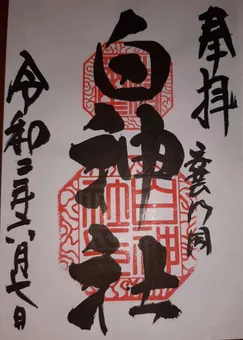 奉拝
白神社
令和二年六月七日